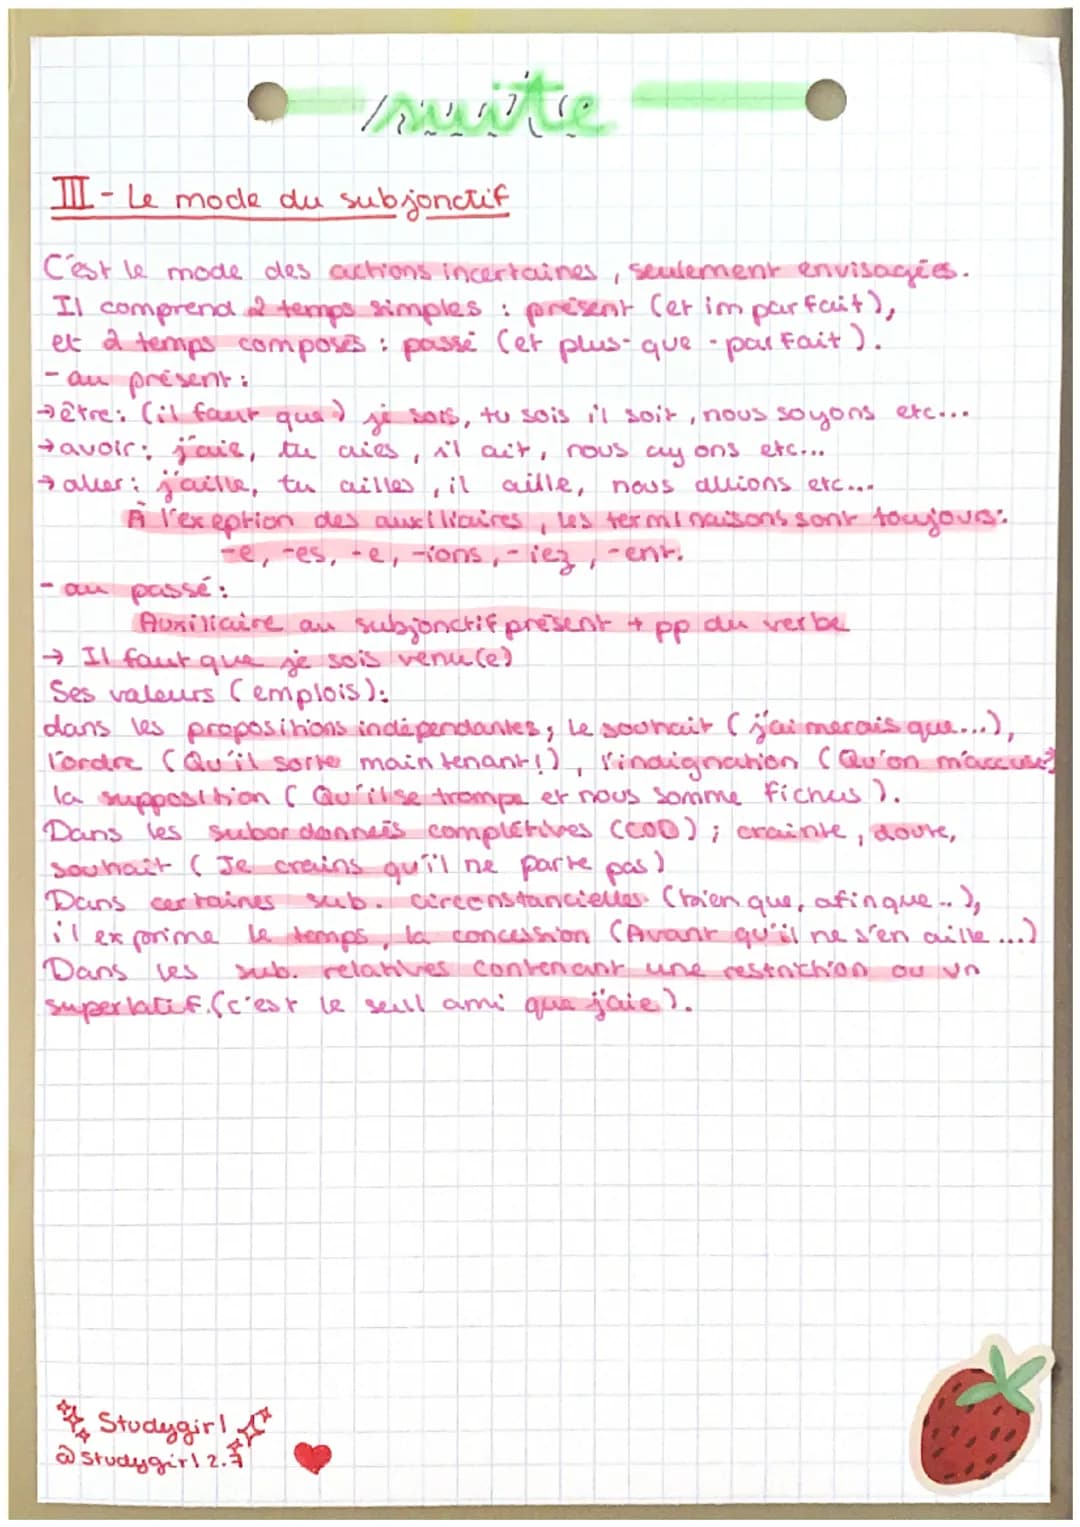 suite
III - Le mode du subjonctif
C'est le mode des actions incertaines, seulement envisagées.
Il comprend 2 temps simples : présent (et imparfait),
et 2 temps composés : passé (et plus-que-parfait).
- au présent :
→ être : (il faut que) je sois, tu sois il soit, nous soyons etc...
→ avoir : j'aie, tu aies, il ait, nous ayons etc...
→ aller : j'aille, tu ailles, il aille, nous allions etc...
À l'exeption des auxiliaires, les terminaisons sont toujours :
-e, -es, -e, -ions, -iez, -ent.
- au passé :
Auxiliaire au subjonctif présent + pp du verbe
→ Il faut que je sois venu(e)
Ses valeurs (emplois) :
dans les propositions indépendantes ; le souhait (j'aimerais que...),
l'ordre (Qu'il sorte maintenant !), l'indignation (Qu'on m'accuse?
la supposition ( Qu'il se trompe et nous somme fichus ).
Dans les subordonnées complétives (COD) ; crainte, doute,
souhait ( Je crains qu'il ne parte pas)
Dans certaines sub. circonstancielles (bien que, afin que...),
il exprime le temps, la concession (Avant qu'il ne s'en aille ...)
Dans les sub. relatives contenant une restriction ou un
superlatif. (c'est le seul ami que j'aie ).
Studygirl
@studygirl2.7